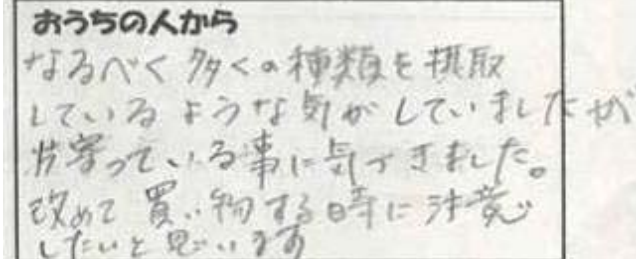 おうちの人から
なるべく多くの種類を摂取
しているような気がしていましたが
片寄っている事に気づきました。
改めて買い物する時に注意
したいと思います